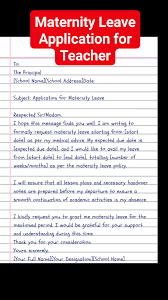 Maternity Leave
Application for
Teacher
To
The Principal
[School Name][School Address]Date:
Subject: Application for Maternity Leave
Respected Sir/Madam,
I hope this message finds you well. I am writing to
formally request maternity leave starting from [start
date] as per my medical advice. My expected due date is
[expected due date], and I would like to avail my leave
from [start date] to [end date], totalling [number of
weeks/months] as per the maternity leave policy.
I will ensure that all lesson plans and necessary handover
notes are prepared before my departure to ensure a
smooth continuation of academic activities in my absence.
I kindly request you to grant me maternity leave for the
mentioned period. I would be grateful for your support
and understanding during this time.
Thank you for your consideration.
Yours sincerely,
[Your Full Name][Your Designation][School Name]